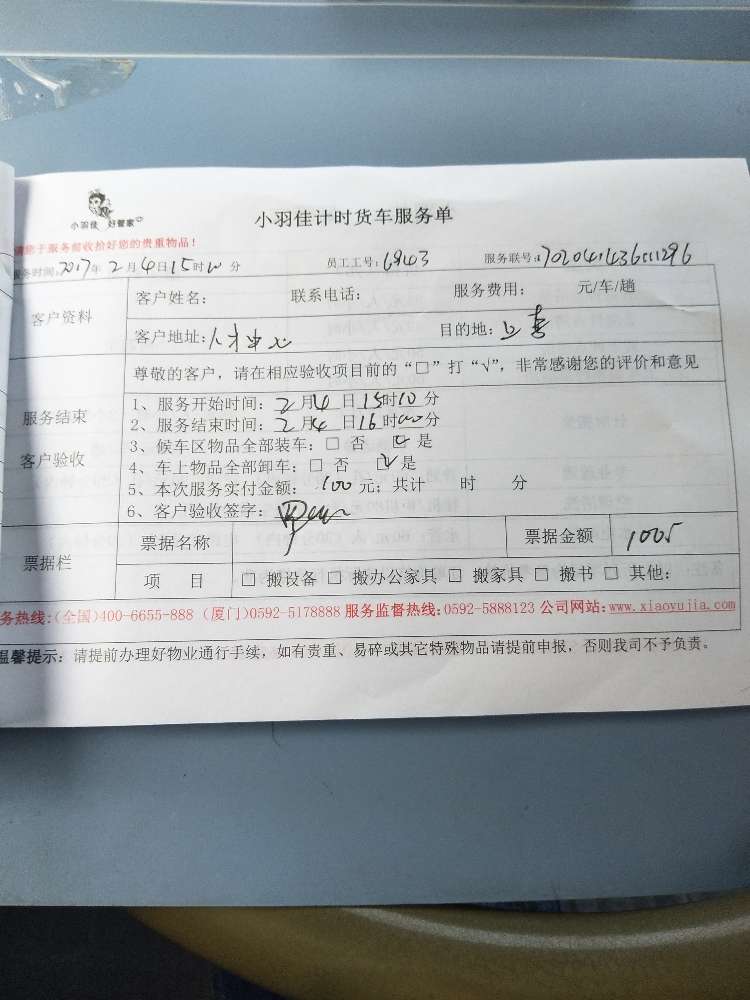 小羽佳 好管家
小羽佳计时货车服务单
请您于服务前收拾好您的贵重物品！
服务时间：2017年2月4日15时10分 员工工号：6943 服务联号：
客户资料 客户姓名： 联系电话： 服务费用： 元/车/趟
客户地址：人才中心 目的地：
尊敬的客户，请在相应验收项目前的“□”打“√”，非常感谢您的评价和意见
服务结束
客户验收
1、服务开始时间：2月4日15时10分
2、服务结束时间：2月4日16时00分
3、候车区物品全部装车：□ 否 ☑ 是
4、车上物品全部卸车：□ 否 ☑ 是
5、本次服务实付金额：100元；共计 时 分
6、客户验收签字：
票据栏 票据名称 票据金额
项 目 □ 搬设备 □ 搬办公家具 □ 搬家具 □ 搬书 □ 其他：
务热线:(全国)400-6655-888 (厦门)0592-5178888 服务监督热线:0592-5888123 公司网站:www.xiaoyujia.com
温馨提示：请提前办理好物业通行手续，如有贵重、易碎或其它特殊物品请提前申报，否则我司不予负责。